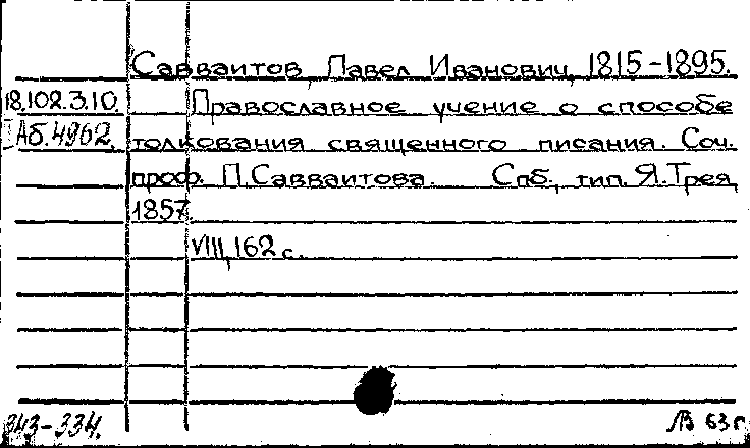 Савваитов, Павел Иванович, 1815-1895.
18.102.3.10. Православное учение о способе
Аб.4962. толкования священного писания. Соч.
проф. П. Савваитова. Спб., тип. Я. Трея,
1857.
VIII, 162 с.
343-334. 63 г